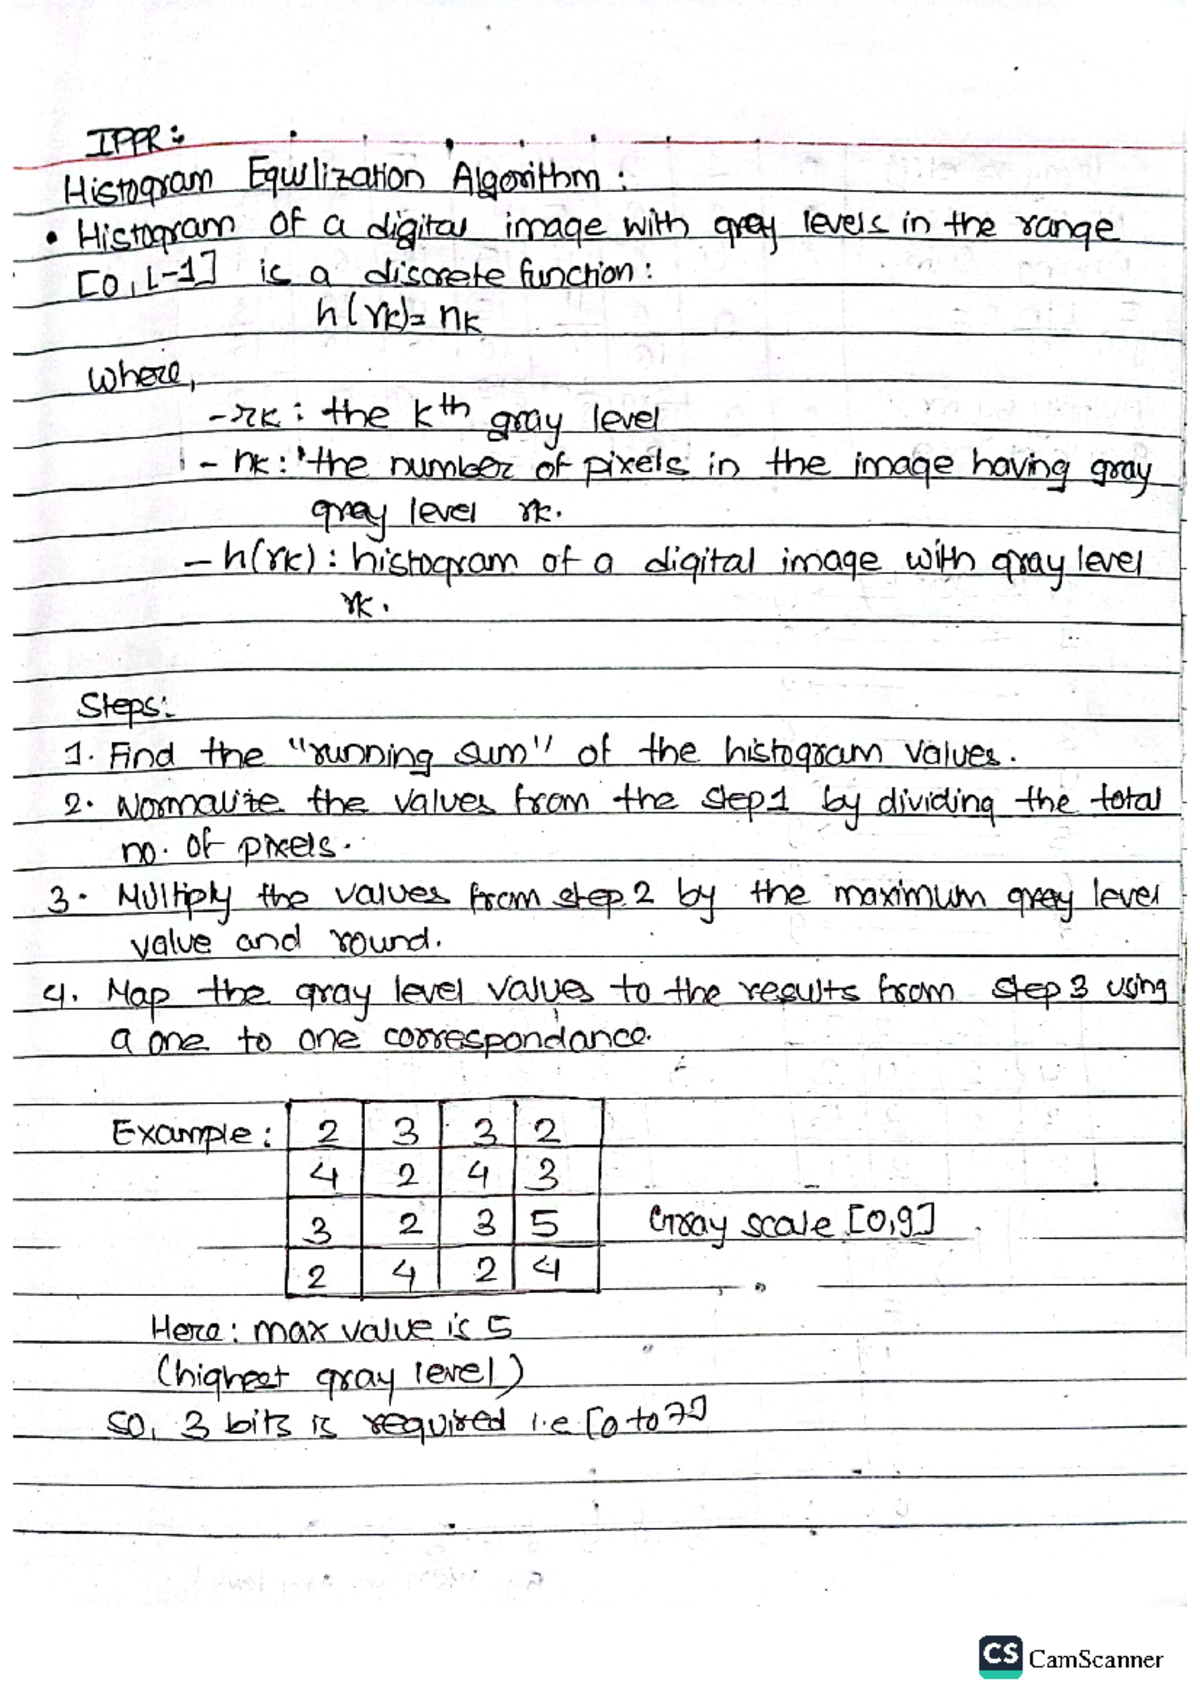 IPPR:
Histogram Equilization Algorithm:
• Histogram of a digital image with gray levels in the range
[0, L-1] is a discrete function:
h(rk) = nk
where,
- rk : the kth gray level
- nk : the number of pixels in the image having gray
gray level rk.
- h(rk) : histogram of a digital image with gray level
rk.
Steps:
1. Find the "running sum" of the histogram values.
2. Normalize the values from the step 1 by dividing the total
no. of pixels.
3. Multiply the values from step 2 by the maximum gray level
value and round.
4. Map the gray level values to the results from step 3 using
a one to one correspondance.
Example: 2 3 3 2
4 2 4 3
3 2 3 5 Gray scale [0,9]
2 4 2 4
Here: max value is 5
(highest gray level)
so, 3 bits is required i.e [0 to 7]
CS CamScanner